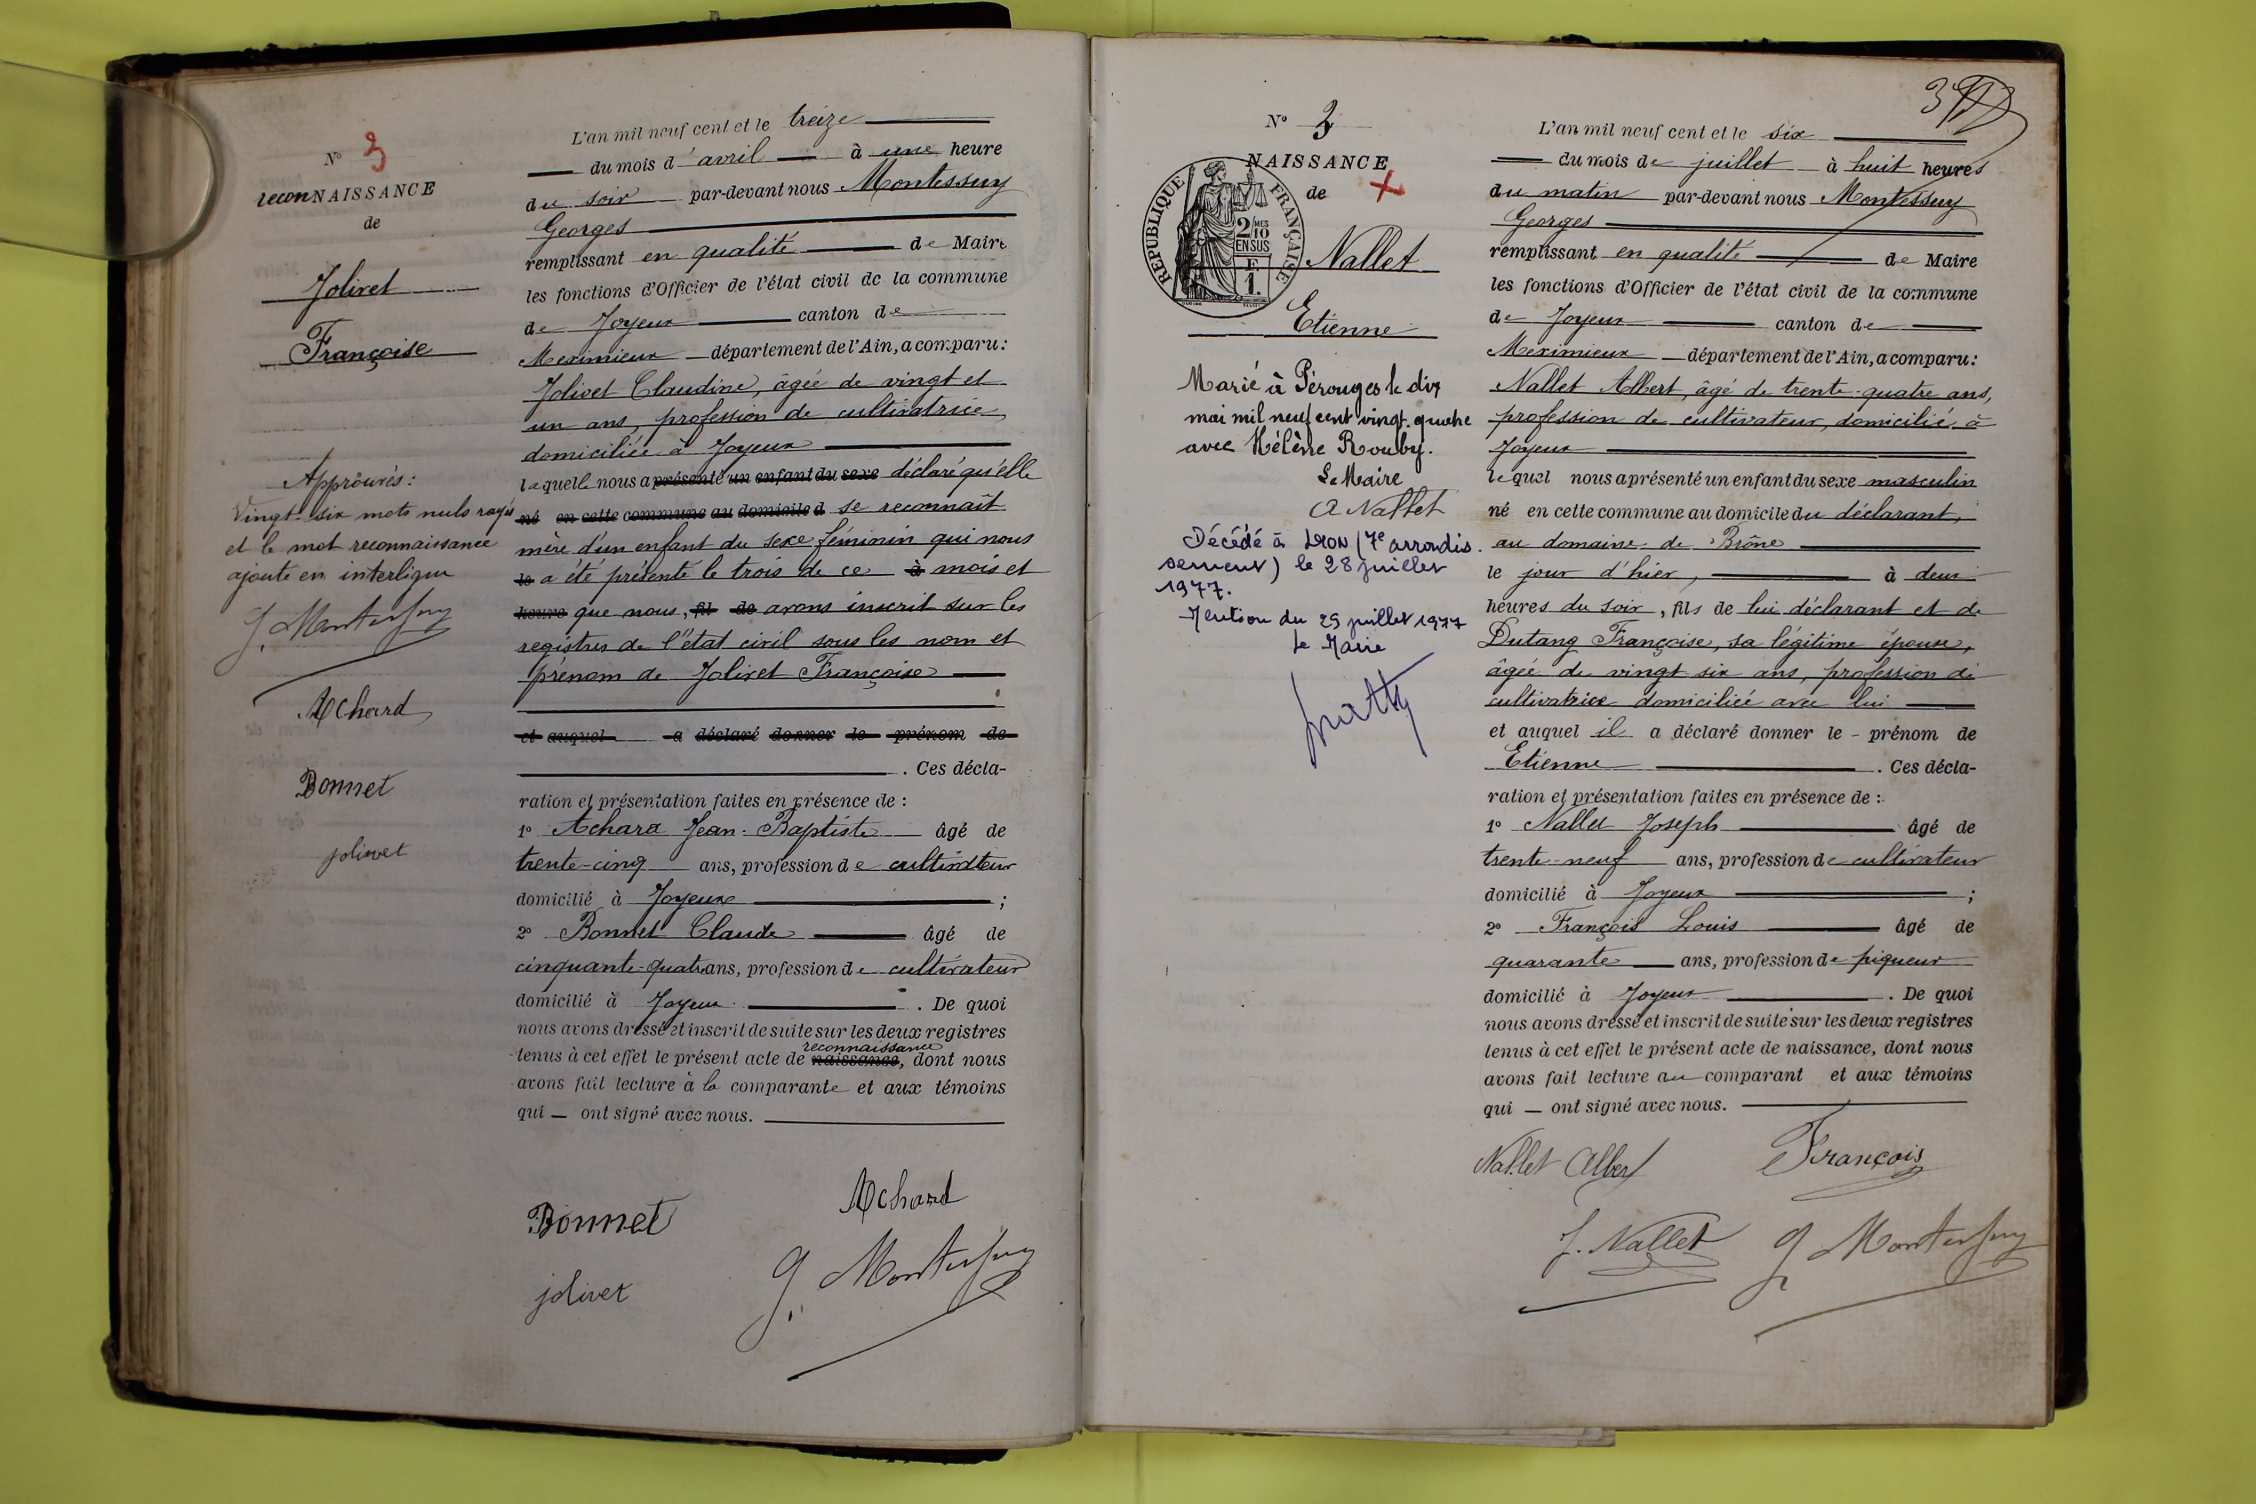 N° 3
reconNAISSANCE
de
Jolivet
Françoise
Approuvés :
Vingt-six mots nuls rayés
et le mot reconnaissance
ajouté en interligne
G. Montessuy
Achard
Bonnet
jolivet
L'an mil neuf cent et le treize
du mois d'avril à une heure
du soir par-devant nous Montessuy
Georges
remplissant en qualité de Maire
les fonctions d'Officier de l'état civil de la commune
de Joyeux canton de
Meximieux département de l'Ain, a comparu :
Jolivet Claudine, âgée de vingt et
un ans, profession de cultivatrice
domiciliée à Joyeux
laquelle nous a présenté un enfant du sexe déclaré qu'elle
né en cette commune au domicile d se reconnaît
mère d'un enfant du sexe féminin qui nous
le a été présenté le trois de ce à mois et
heure que nous, fil de avons inscrit sur les
registres de l'état civil sous les nom et
prénom de Jolivet Françoise
et auquel a déclaré donner le prénom de
. Ces décla-
ration et présentation faites en présence de :
1° Achard Jean-Baptiste âgé de
trente-cinq ans, profession de cultivateur
domicilié à Joyeux ;
2° Bonnet Claude âgé de
cinquante-quatre ans, profession de cultivateur
domicilié à Joyeux . De quoi
nous avons dressé et inscrit de suite sur les deux registres
reconnaissance
tenus à cet effet le présent acte de naissance, dont nous
avons fait lecture à la comparante et aux témoins
qui — ont signé avec nous.
Bonnet
Achard
jolivet
G. Montessuy
3
N° 3
NAISSANCE
de
RÉPUBLIQUE FRANÇAISE
2/10 MES
EN SUS
F
1.
Nallet
Etienne
Marié à Pérouges le dix
mai mil neuf cent vingt-quatre
avec Hélène Rouby.
Le Maire
A Nallet
Décédé à LYON (7e arrondis-
sement) le 28 juillet
1977.
Mention du 29 juillet 1977
Le Maire
L'an mil neuf cent et le six
du mois de juillet à huit heures
du matin par-devant nous Montessuy
Georges
remplissant en qualité de Maire
les fonctions d'Officier de l'état civil de la commune
de Joyeux canton de
Meximieux département de l'Ain, a comparu :
Nallet Albert, âgé de trente-quatre ans,
profession de cultivateur, domicilié à
Joyeux
lequel nous a présenté un enfant du sexe masculin
né en cette commune au domicile du déclarant,
au domaine de Brône
le jour d'hier, à deux
heures du soir, fils de lui déclarant et de
Dutang Françoise, sa légitime épouse,
âgée de vingt six ans, profession de
cultivatrice domiciliée avec lui
et auquel il a déclaré donner le - prénom de
Etienne . Ces décla-
ration et présentation faites en présence de :
1° Nallet Joseph âgé de
trente-neuf ans, profession de cultivateur
domicilié à Joyeux ;
2° François Louis âgé de
quarante ans, profession de piqueur
domicilié à Joyeux . De quoi
nous avons dressé et inscrit de suite sur les deux registres
tenus à cet effet le présent acte de naissance, dont nous
avons fait lecture au comparant et aux témoins
qui — ont signé avec nous.
Nallet Albert
François
J. Nallet
G Montessuy